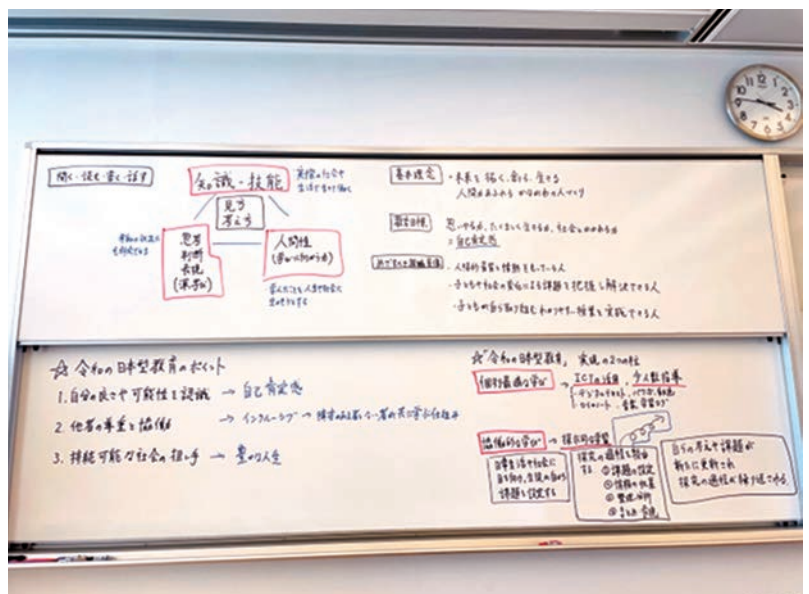 聞く・読む・書く・話す
知識・技能
実際の社会や
生活で生きて働く
見方
考え方
思考
判断
表現
(深学び)
人間性
(学びに向かう力)
学んだことを人生や社会に
生かそうとする
基本理念
・未来を拓く、創る、生きる
人間性あふれる
教育目標
思いやる力、たくましく生きる力、社会とかかわる力
=自己肯定感
・人格的資質と情熱をもっている人
・子どもや社会の変化による課題を把握し解決できる人
・子どもが自ら取り組むわかりやすい授業を実践できる人
☆ 令和の日本型教育のポイント
1. 自分の良さや可能性を認識 → 自己肯定感
2. 他者の尊重と協働 → インクルーシブ → 障害のある者とない者が共に学ぶ仕組み
3. 持続可能な社会の担い手 → 豊かな人生
☆「令和の日本型教育」 実現の2つの柱
個別最適な学び → ICTの活用、少人数指導
・デジタルテキスト、パワポ、動画
協働的な学び → 探究的な学習
日常生活や社会に
目を向け、生徒が自ら
課題を設定する
探究の過程を経由
する ①課題の設定
②情報の収集
③整理・分析
④まとめ・表現
自らの考えや課題が
新たに更新され
探究の過程が繰り返される。
12
1
2
3
4
5
6
7
8
9
10
11